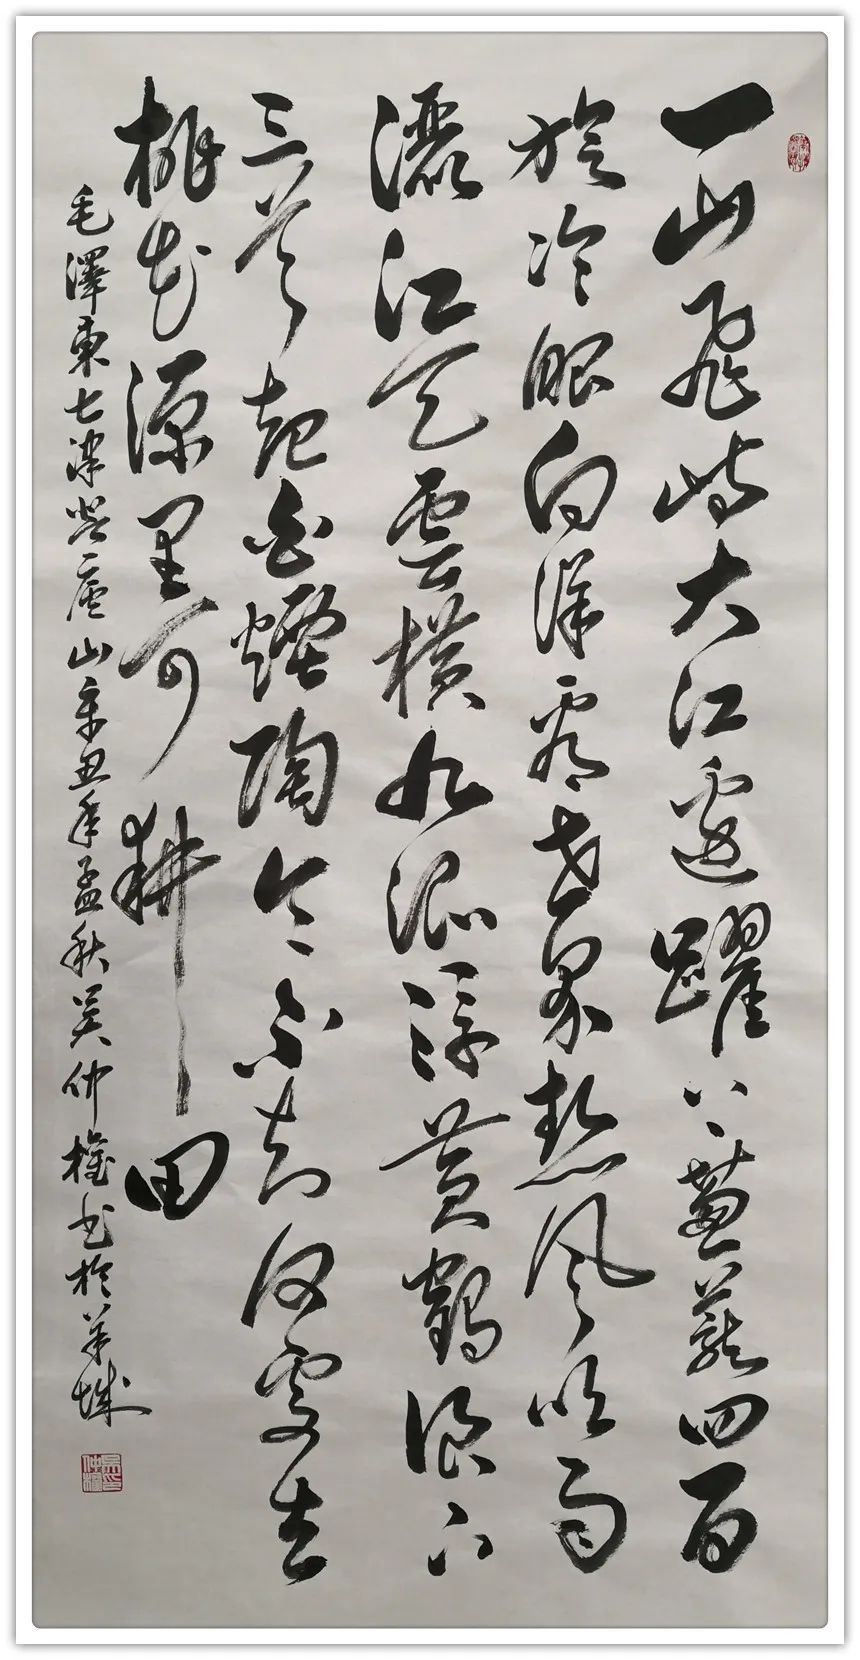 一山飛峙大江邊躍上蔥蘢四百
旋冷眼向洋看世界熱風吹雨
灑江天雲橫九派浮黃鶴浪下
三吳起白煙陶令不知何處去
桃花源里可耕田
毛澤東七律登廬山辛丑年孟秋吳仲權書於羊城